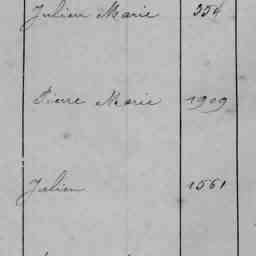 Julien Marie 354
Pierre Marie 1909
Julien 1561